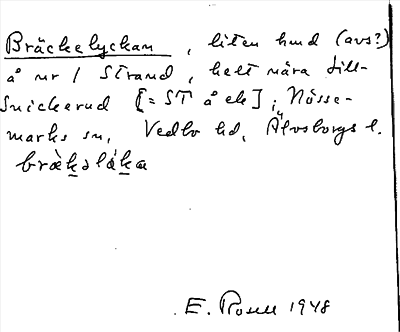 Bräckelyckan, liten hmd (avs?)
å nr 1 Strand, helt nära till
Snickerud [= ST å ek]; Nösse-
marks sn, Vedbo hd, Älvsborgs l.
E. 1948